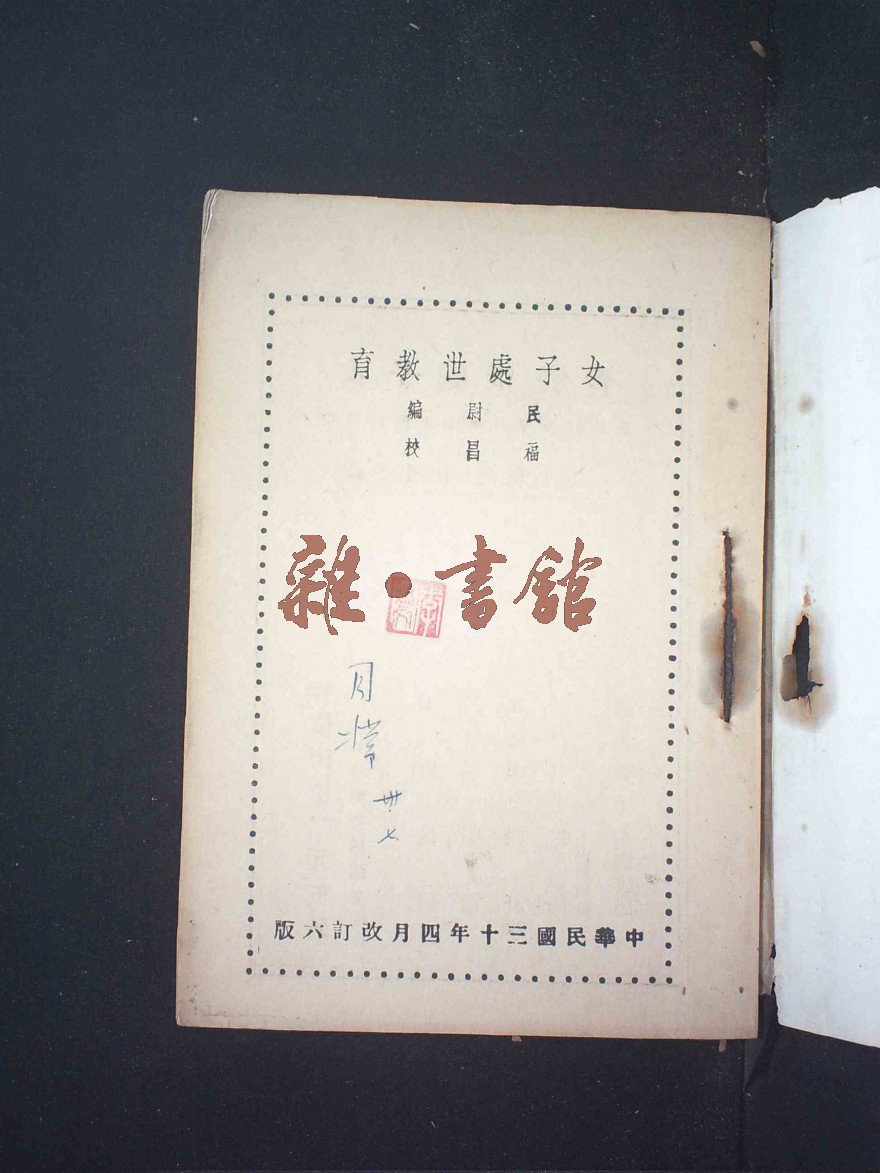 女子處世教育
民尉編
福昌校
雜·書館
卅七
中華民國三十年四月改訂六版